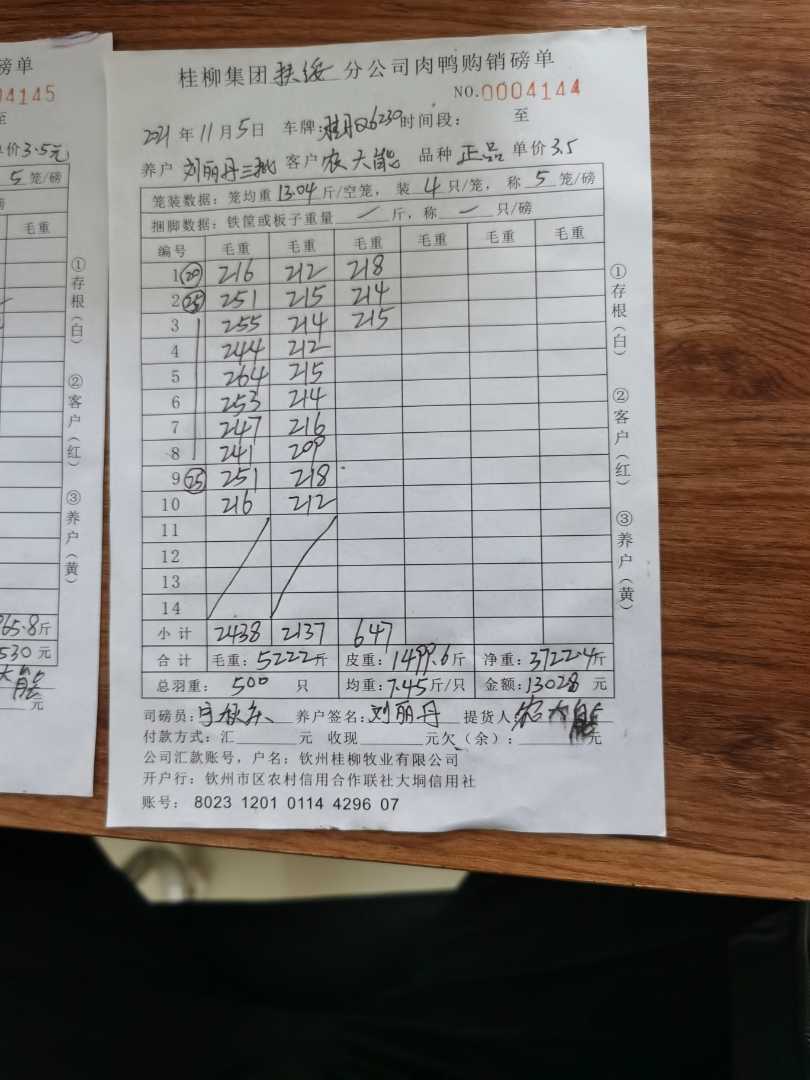 磅单
04145
至
单价3.5元
5 笼/磅
磅
毛重
①存根(白) ②客户(红) ③养户(黄)
965.8斤
530元
元
桂柳集团扶绥分公司肉鸭购销磅单
NO.0004144
2021年11月5日 车牌:桂AQ6230时间段: 至
养户 刘丽丹三批 客户 农大能 品种 正品 单价3.5
笼装数据: 笼均重13.04斤/空笼, 装4只/笼, 称5笼/磅
捆脚数据: 铁筐或板子重量 / 斤, 称 / 只/磅
编号 毛重 毛重 毛重 毛重 毛重 毛重
1 (20) 216 212 218
2 (25) 251 215 214
3 255 214 215
4 244 212
5 264 215
6 253 214
7 247 216
8 241 209
9 (25) 251 218
10 216 212
11
12
13
14
小计 2438 2137 647
合计 毛重: 5222斤 皮重: 1499.6斤 净重: 3722.4斤
总羽重: 500 只 均重: 7.45斤/只 金额: 13028 元
司磅员: 养户签名: 刘丽丹 提货人 农大能
付款方式: 汇 元 收现 元欠(余): 元
公司汇款账号, 户名: 钦州桂柳牧业有限公司
开户行: 钦州市区农村信用合作联社大垌信用社
账号: 8023 1201 0114 4296 07
①存根(白) ②客户(红) ③养户(黄)